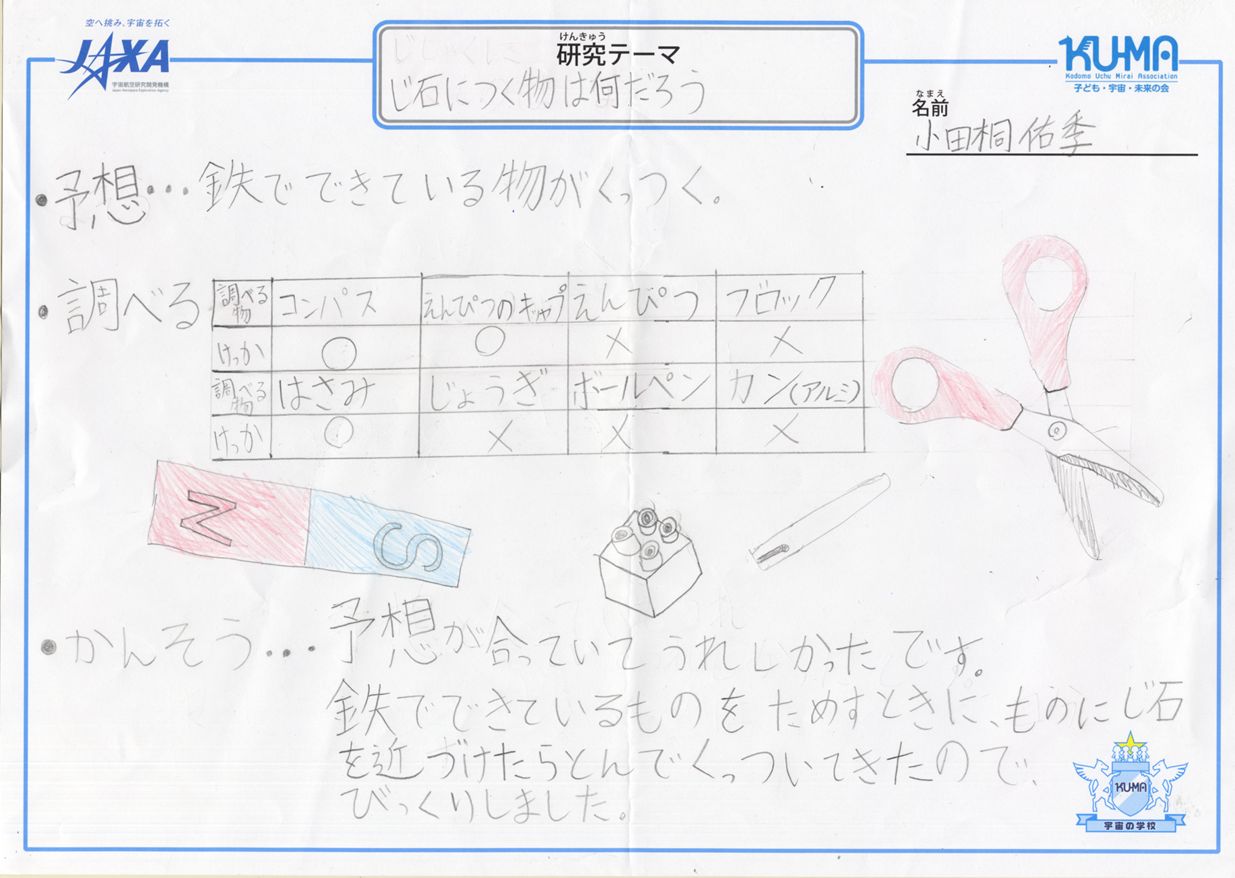 空へ挑み、宇宙を拓く
JAXA
宇宙航空研究開発機構
Japan Aerospace Exploration Agency
けんきゅう
研究テーマ
じ石につく物は何だろう
KU-MA
Kodomo Uchu Mirai Association
子ども・宇宙・未来の会
なまえ
名前
小田桐 佑季
・予想…鉄でできている物がくっつく。
・調べる
調べる物 コンパス えんぴつのキャップ えんぴつ ブロック
けっか ○ ○ × ×
調べる物 はさみ じょうぎ ボールペン カン(アルミ)
けっか ○ × × ×
N S
・かんそう…予想が合っていてうれしかったです。
鉄でできているものをためすときに、ものにじ石
を近づけたらとんでくっついてきたので、
びっくりしました。
KU-MA
宇宙の学校